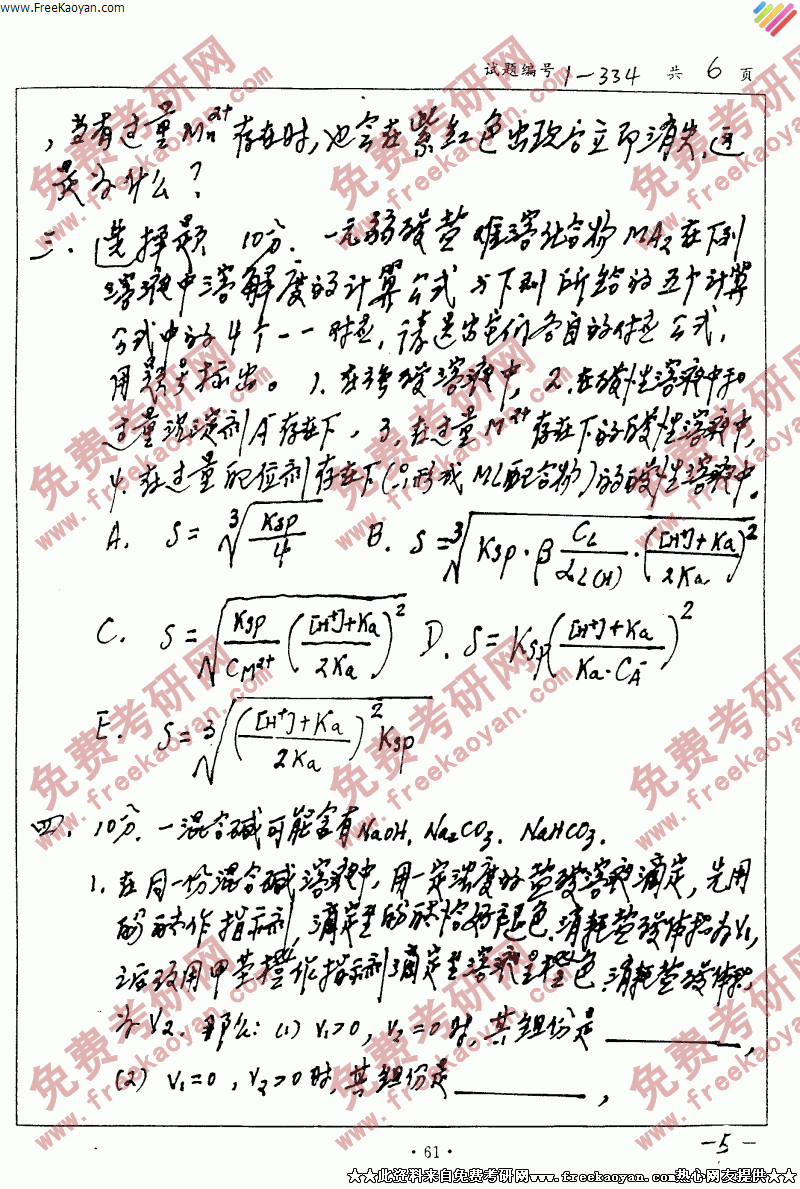 www.FreeKaoyan.com
试题编号 1-334 共 6 页
,当有过量Mn²⁺存在时,也会在紫红色出现后立即消失,这
是为什么?
三、选择题 10分. 一元弱酸盐难溶化合物 MA₂在下列
溶液中溶解度的计算公式与下列所给的五个计算
公式中的4个一一对应,请选出它们各自的对应公式,
用题号标出。1.在强酸溶液中, 2.在酸性溶液中和
过量沉淀剂A⁻存在下, 3.在过量M²⁺存在下的酸性溶液中,
4.在过量配位剂存在下(只形成ML配合物)的酸性溶液中。
A. S=∛(Ksp/4) B. S=∛(Ksp·β C_L/α_L(H)·(([H⁺]+Ka)/2Ka)²)
C. S=√(Ksp/C_M²⁺ (([H⁺]+Ka)/2Ka)²) D. S=Ksp(([H⁺]+Ka)/(Ka·C_A⁻))²
E. S=∛((([H⁺]+Ka)/2Ka)² Ksp)
四、10分. 一混合碱可能含有NaOH, Na₂CO₃, NaHCO₃.
1. 在同一份混合碱溶液中,用一定浓度的盐酸溶液滴定,先用
酚酞作指示剂,滴定至酚酞恰好褪色,消耗盐酸体积为V₁,
之后改用甲基橙作指示剂滴定至溶液呈橙色,消耗盐酸体积
为V₂. 那么: (1) V₁>0, V₂=0时,其组份是 ,
(2) V₁=0, V₂>0时,其组份是 ,
-5-
·61·
★★此资料来自免费考研网www.freekaoyan.com热心网友提供★★